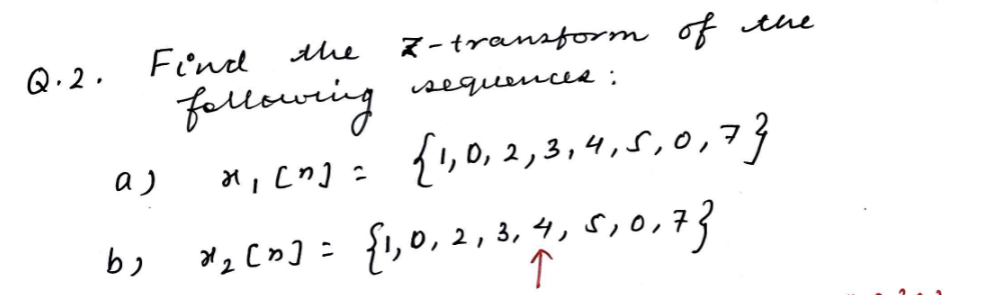 Q.2. Find the Z-transform of the
following sequences:
a) x₁[n] = {1, 0, 2, 3, 4, 5, 0, 7}
b) x₂[n] = {1, 0, 2, 3, 4, 5, 0, 7}
↑